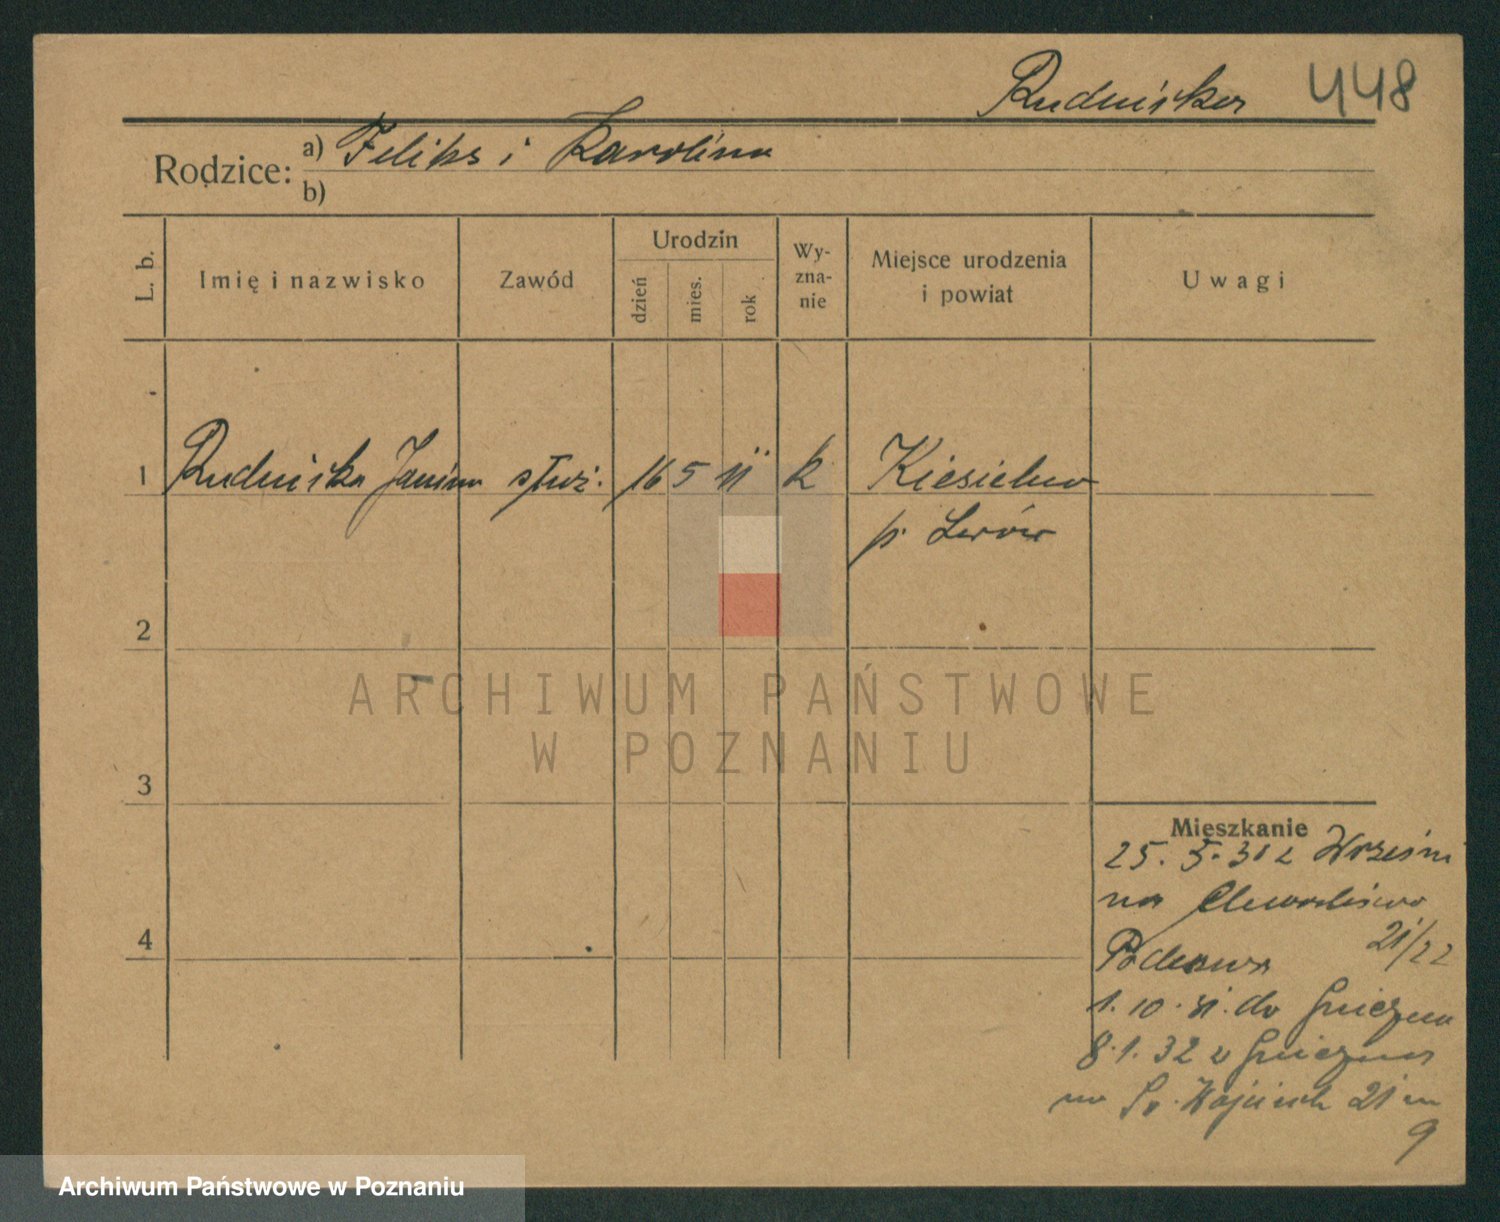 Rudnicka 448
Rodzice: a) Feliks i Karolina
b)
L. b. Imię i nazwisko Zawód Urodzin dzień mies. rok Wy-zna-nie Miejsce urodzenia i powiat Uwagi
1 Rudnicka Janina służ. 16 5 11 k Kiesielewo
p. Lwów
2
3
4
Mieszkanie
25. 5. 31 z Wrześni
na
21/22
1. 10. 31. do Gniezna
8. 1. 32 z Gniezna
na Św. Wojciech 21 m
9
ARCHIWUM PAŃSTWOWE
W POZNANIU
Archiwum Państwowe w Poznaniu